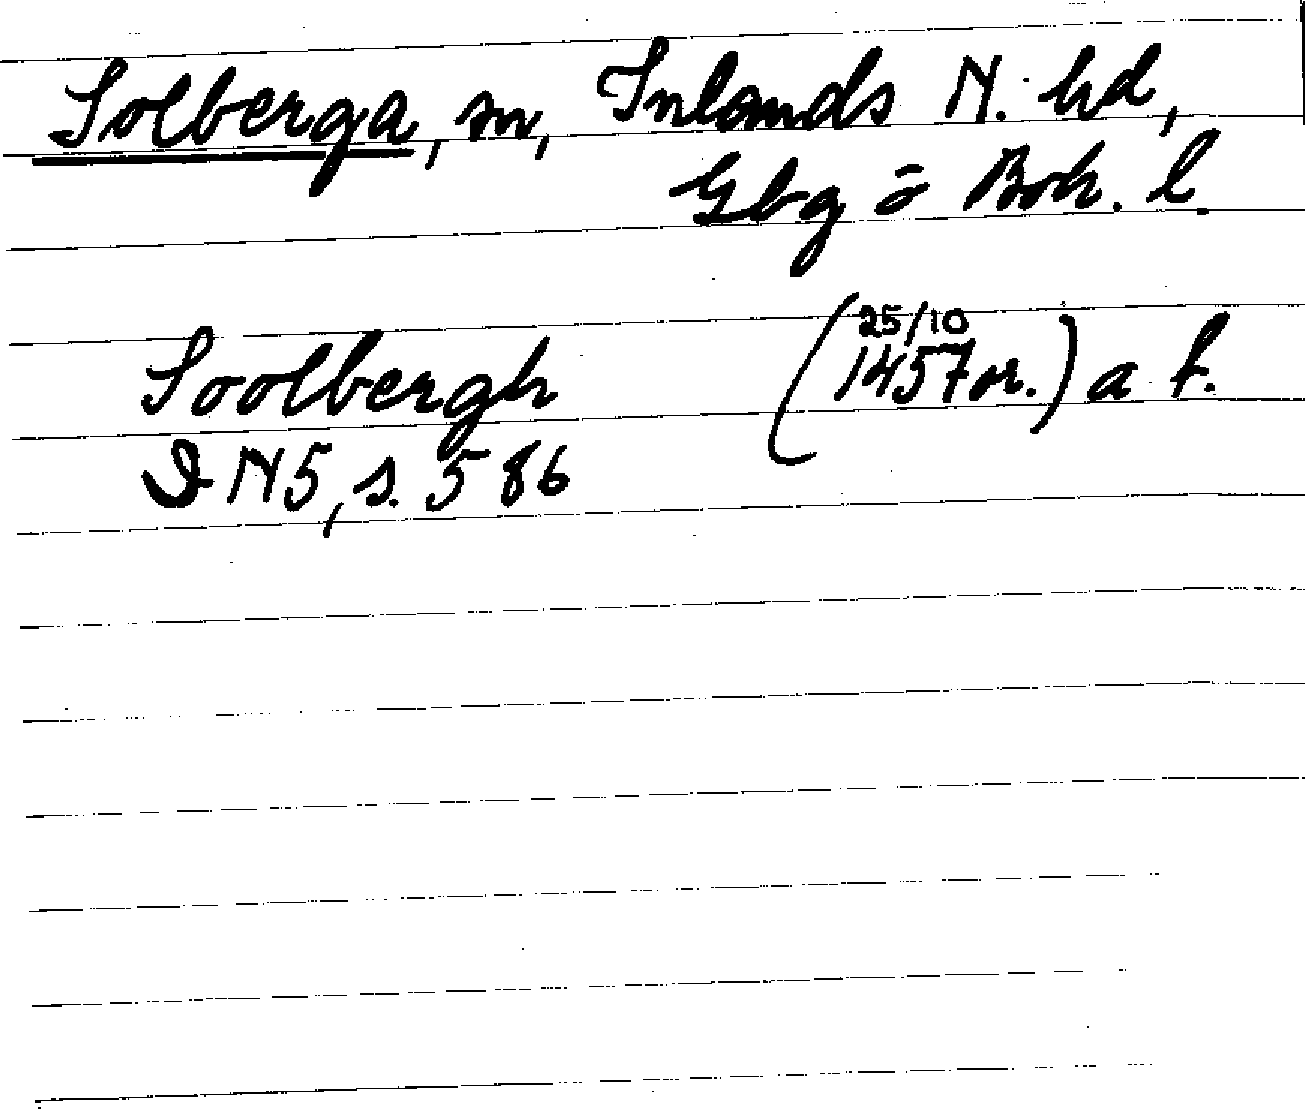 Solberga, sn, Inlands N. hd,
Gbg o Boh. l.
Soolbergh (25/10 1457 or.) a f.
DN 5, s. 586